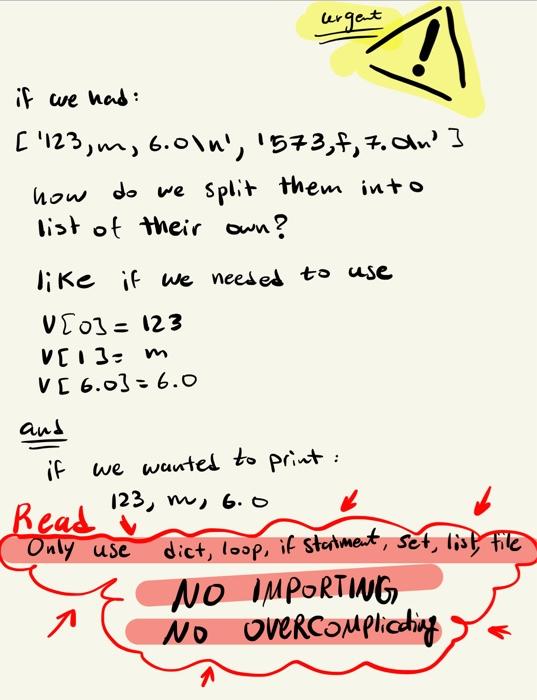 urgent
!
if we had:
['123,m,6.0\n', '573,f,7.0\n']
how do we split them into
list of their own?
like if we needed to use
V[0] = 123
V[1] = m
V[6.0] = 6.0
and
if we wanted to print:
123, m, 6.0
Read
Only use dict, loop, if statment, set, list, file
NO IMPORTING,
NO OVERCOMPlicating